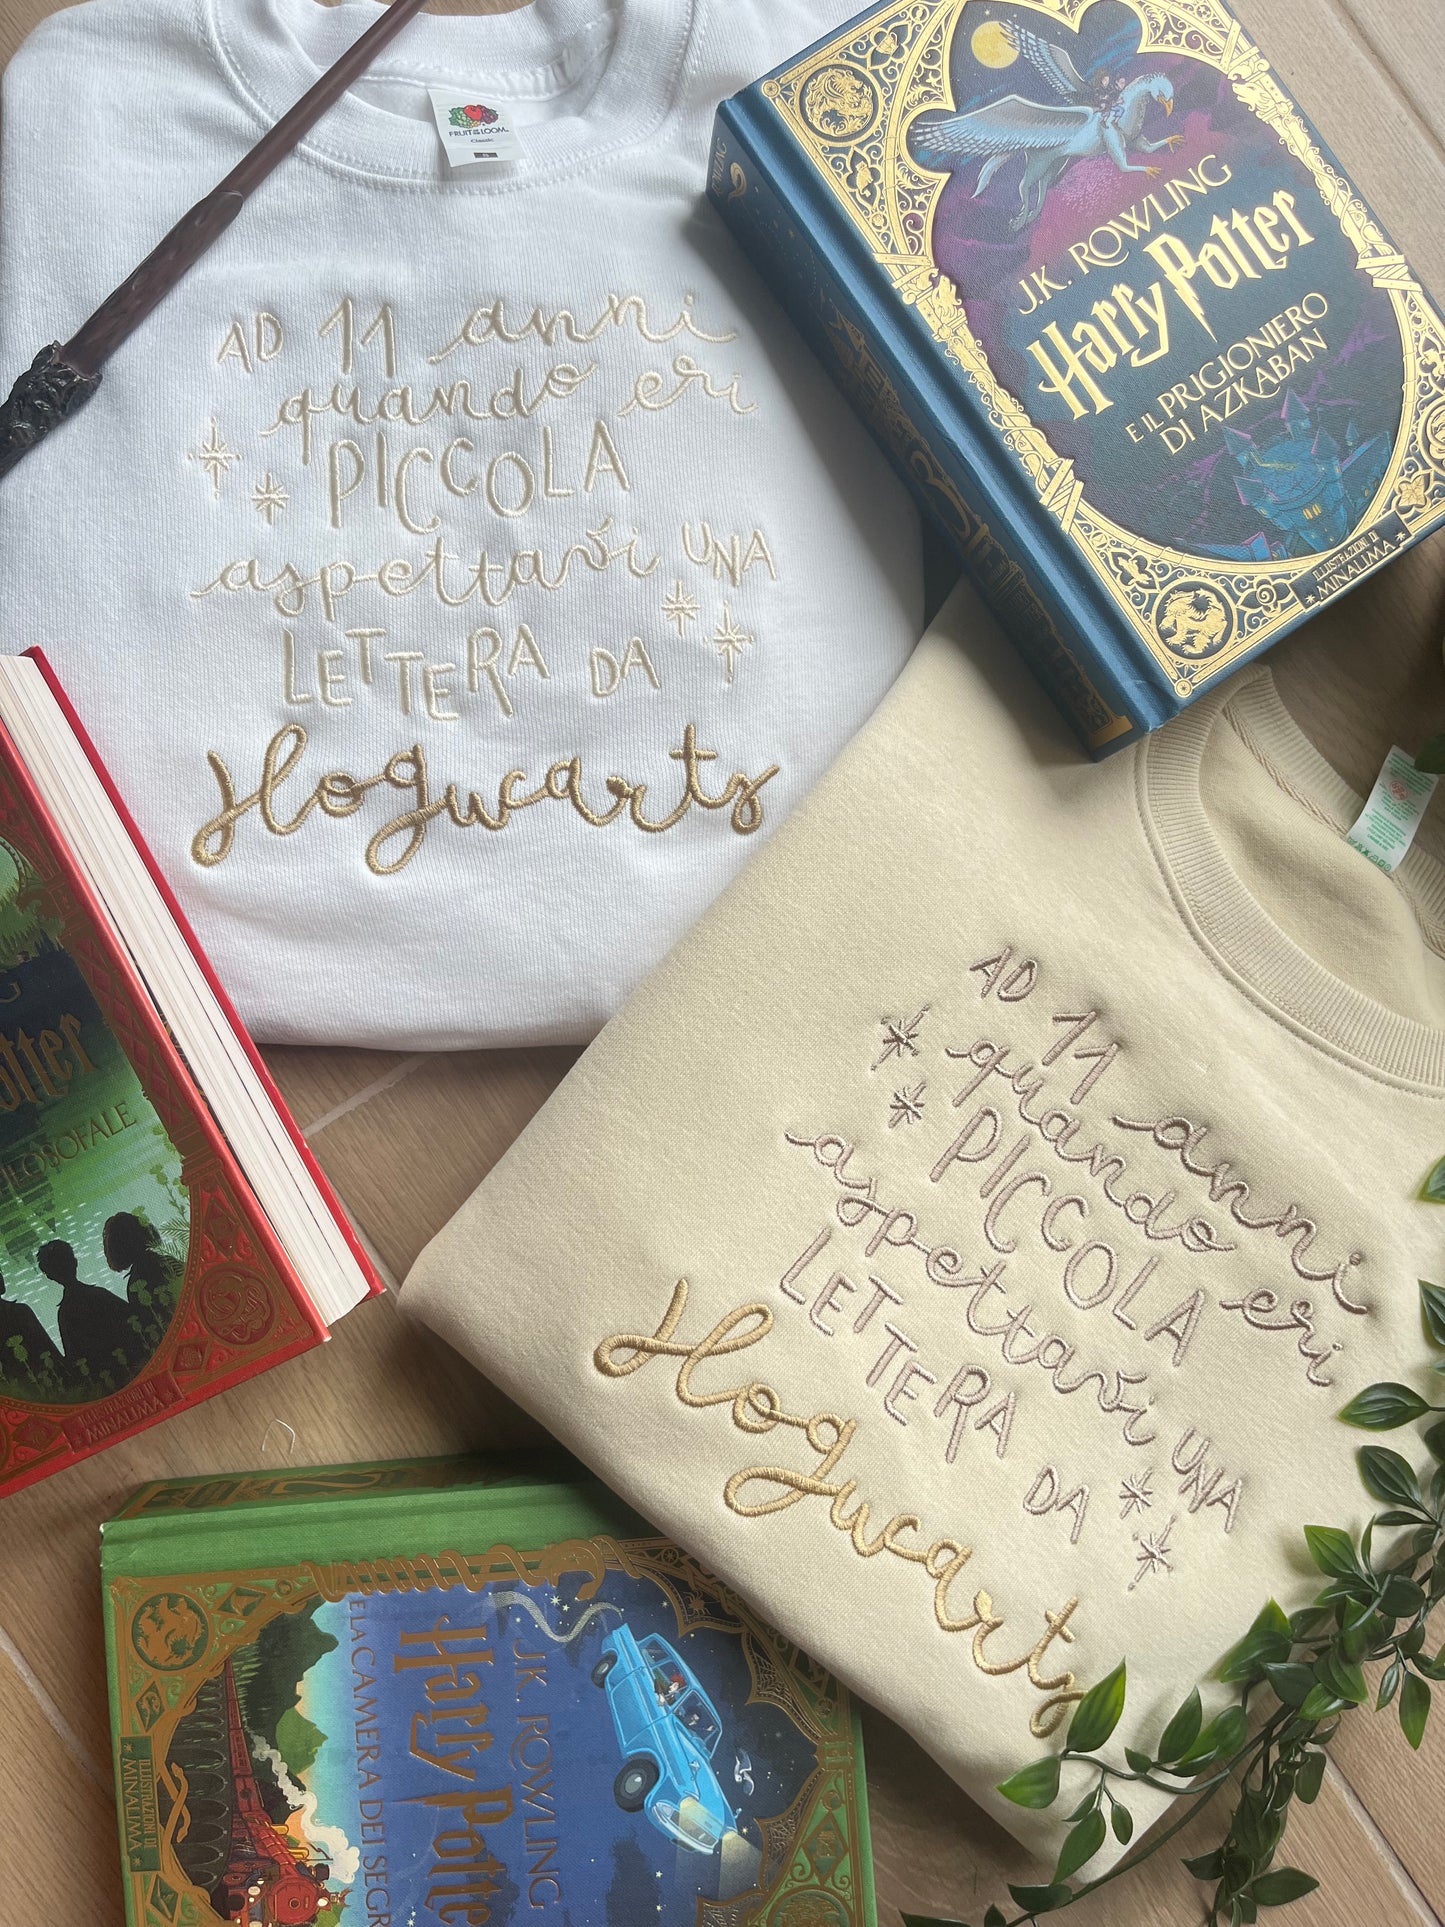 FRUIT OF THE LOOM
Classic
S
AD 11 anni
quando eri
PICCOLA
aspettavi UNA
LETTERA DA
Hogwarts
ROWLING
J.K. ROWLING
Harry Potter
E IL PRIGIONIERO
DI AZKABAN
ILLUSTRAZIONI DI
MINALIMA
AD 11 anni
quando eri
PICCOLA
aspettavi UNA
LETTERA DA
Hogwarts
ILLUSTRAZIONI DI
MINALIMA
J.K. ROWLING
Harry Potter
E LA CAMERA DEI SEGR
ILLUSTRAZIONI DI
MINALIMA